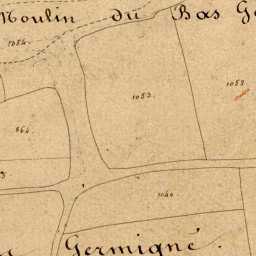 Moulin du Bas Ge
1054.
1053.
1052
864.
3.
1040.
Germigné.